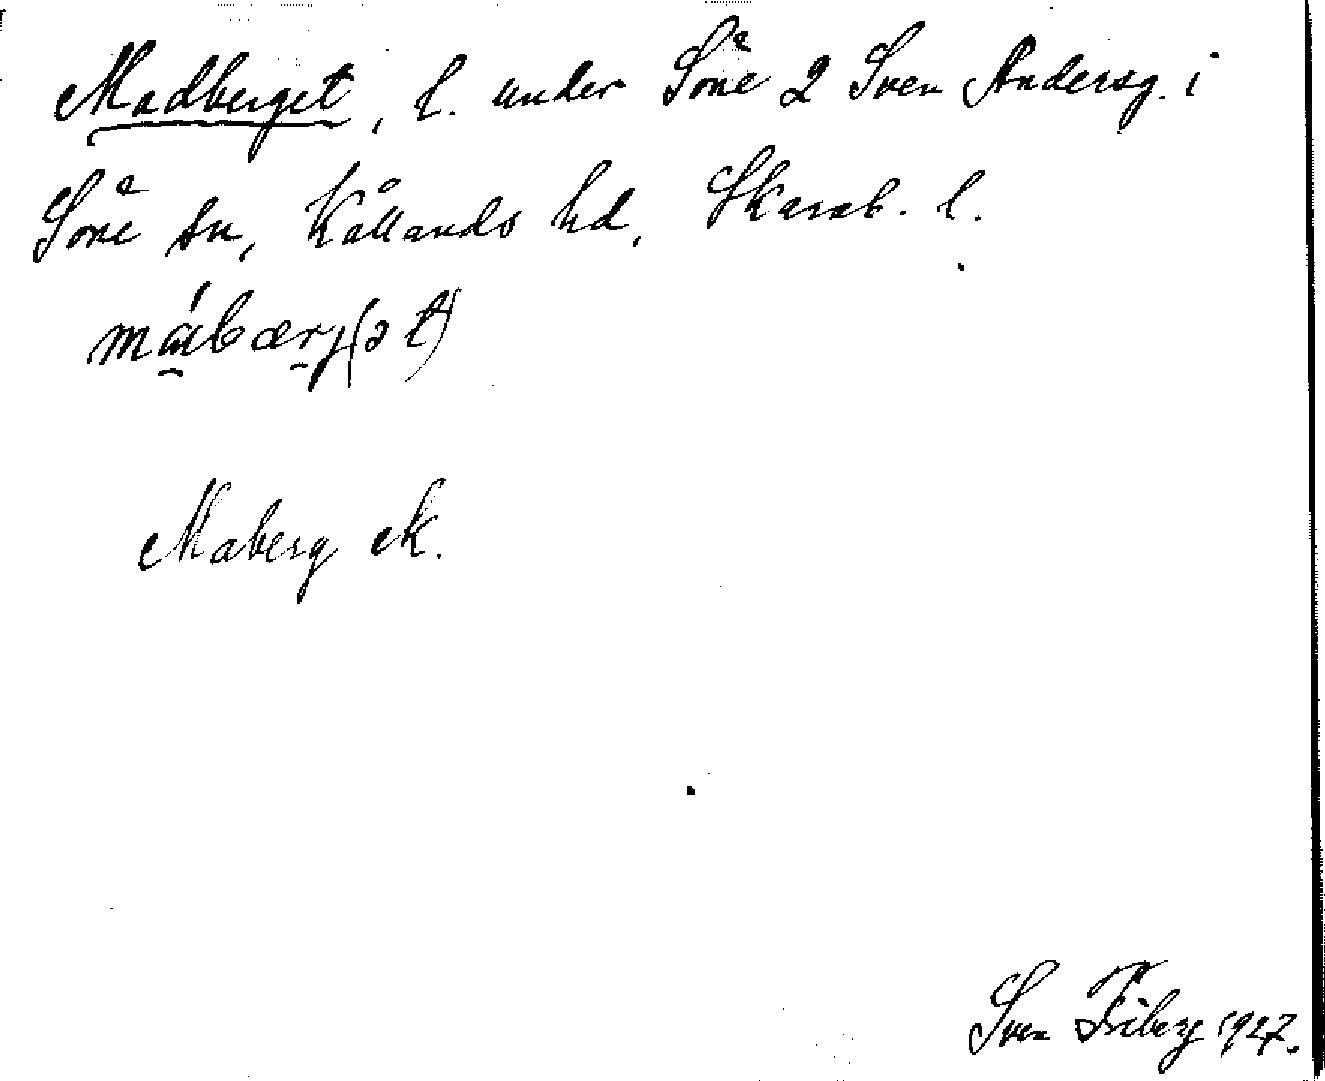 Madberget, l. under Söne 2 Sven Andersg. i
Söne sn, Kållands hd, Skarab. l.
mábærj(ət)
Maberg ek.
Sven Friberg 1927.